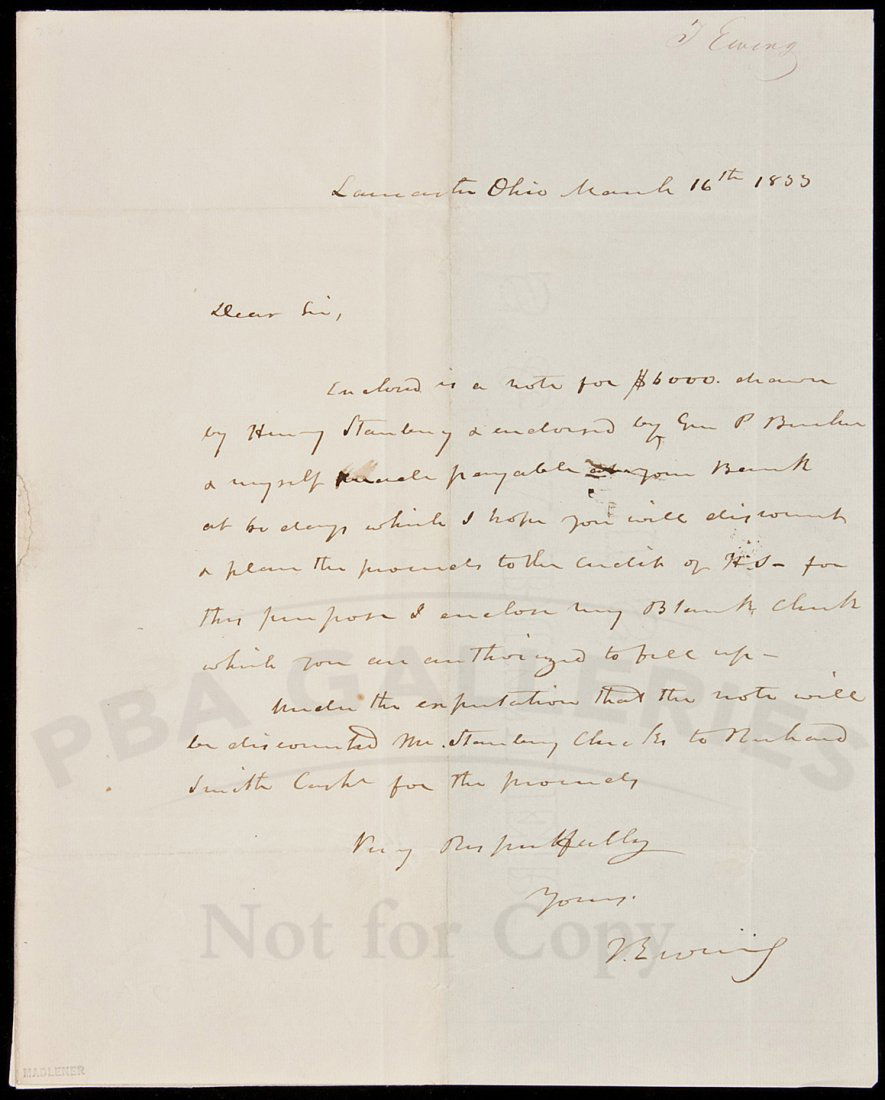 T Ewing
Lancaster Ohio March 16th 1833
Dear Sir,
Enclosed is a note for $6000. drawn
by Henry Stanbery & endorsed by Geo P
& myself made payable your Bank
at 60 days which I hope you will discount
& place the proceeds to the credit of H.S- for
this purpose I enclose my Blank Check
which you are authorized to fill up-
Under the expectation that the note will
be discounted Mr. Stanbery Checks to Richard
Smith Cashr for the proceeds
Very Respectfully
Yours.
T. Ewing
PBA GALLERIES
Not for Copy
MADLENER